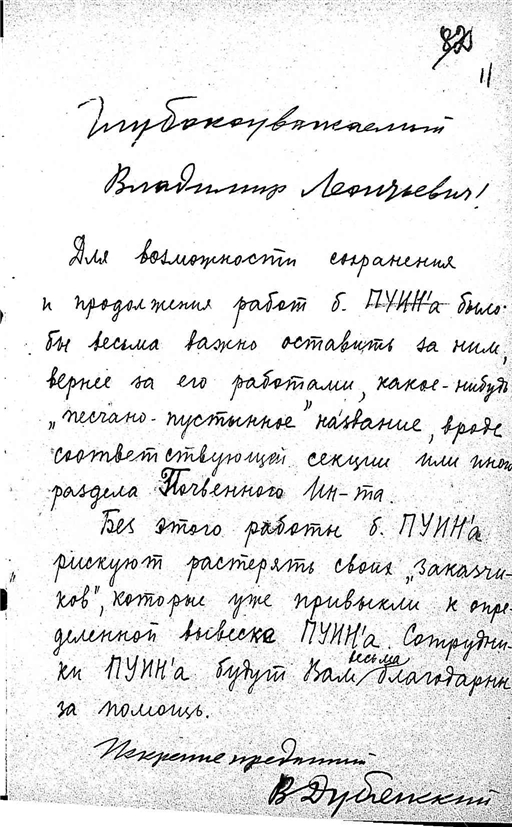 82
11
Глубокоуважаемый
Владимир Леонтьевич!
Для возможности сохранения
и продолжения работ б. ПУИН'а было
бы весьма важно оставить за ним,
вернее за его работами, какое-нибудь
„песчано-пустынное" название, вроде
соответствующей секции или иного
раздела Почвенного Ин-та.
Без этого работы б. ПУИН'а
рискуют растерять своих „заказчи-
ков", которые уже привыкли к опре-
деленной вывеске ПУИН'а. Сотрудни-
ки ПУИН'а будут Вам весьма благодарны
за помощь.
Искренне преданный
В Дубянский